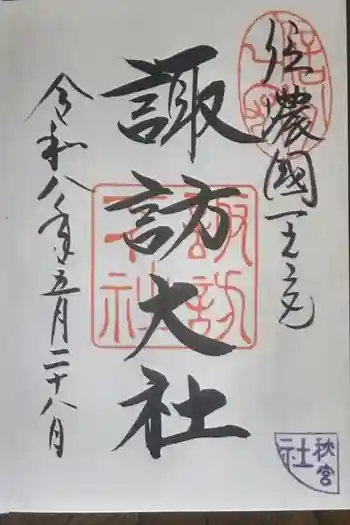 信濃國一之宮
諏訪大社
令和八年五月二十八日
諏訪
大社
秋宮
社